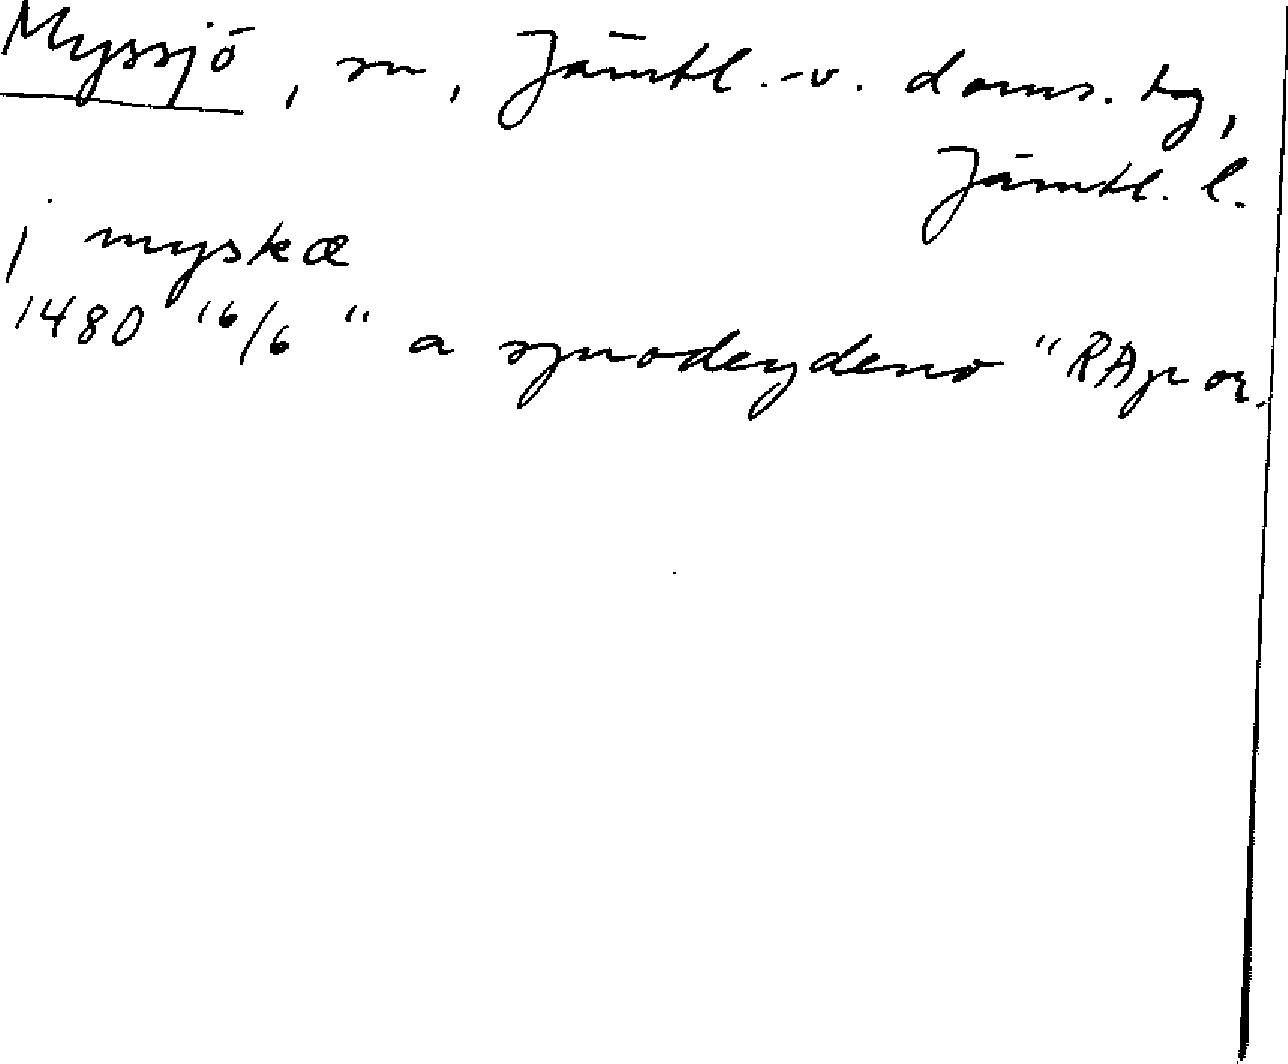 Myssjö, sn, Jämtl.-v. doms. tg,
Jämtl. l.
j myskæ
1480 16/6 "a synodeydeno" RAp or.